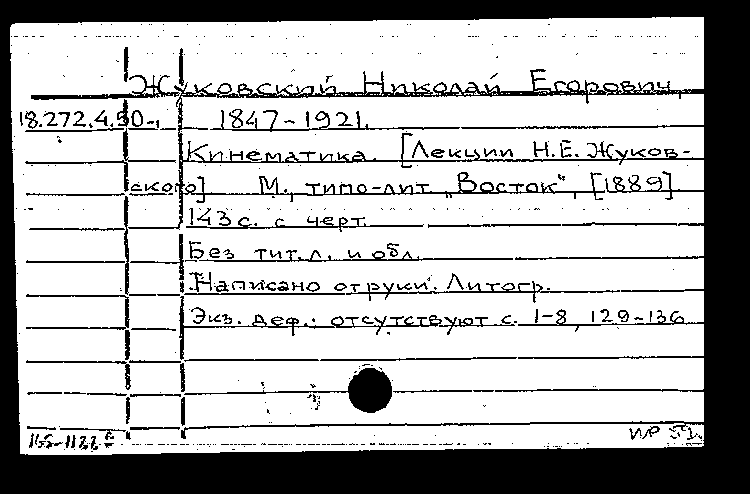 Жуковский Николай Егорович,
18.272.4.90-, 1847-1921.
Кинематика. [Лекции Н.Е. Жуков-
ского]. М., типо-лит „Восток“, [1889]
143 с. с черт.
Без тит.л. и обл.
Написано от руки. Литогр.
Экз. деф.: отсутствуют с. 1-8, 129-136